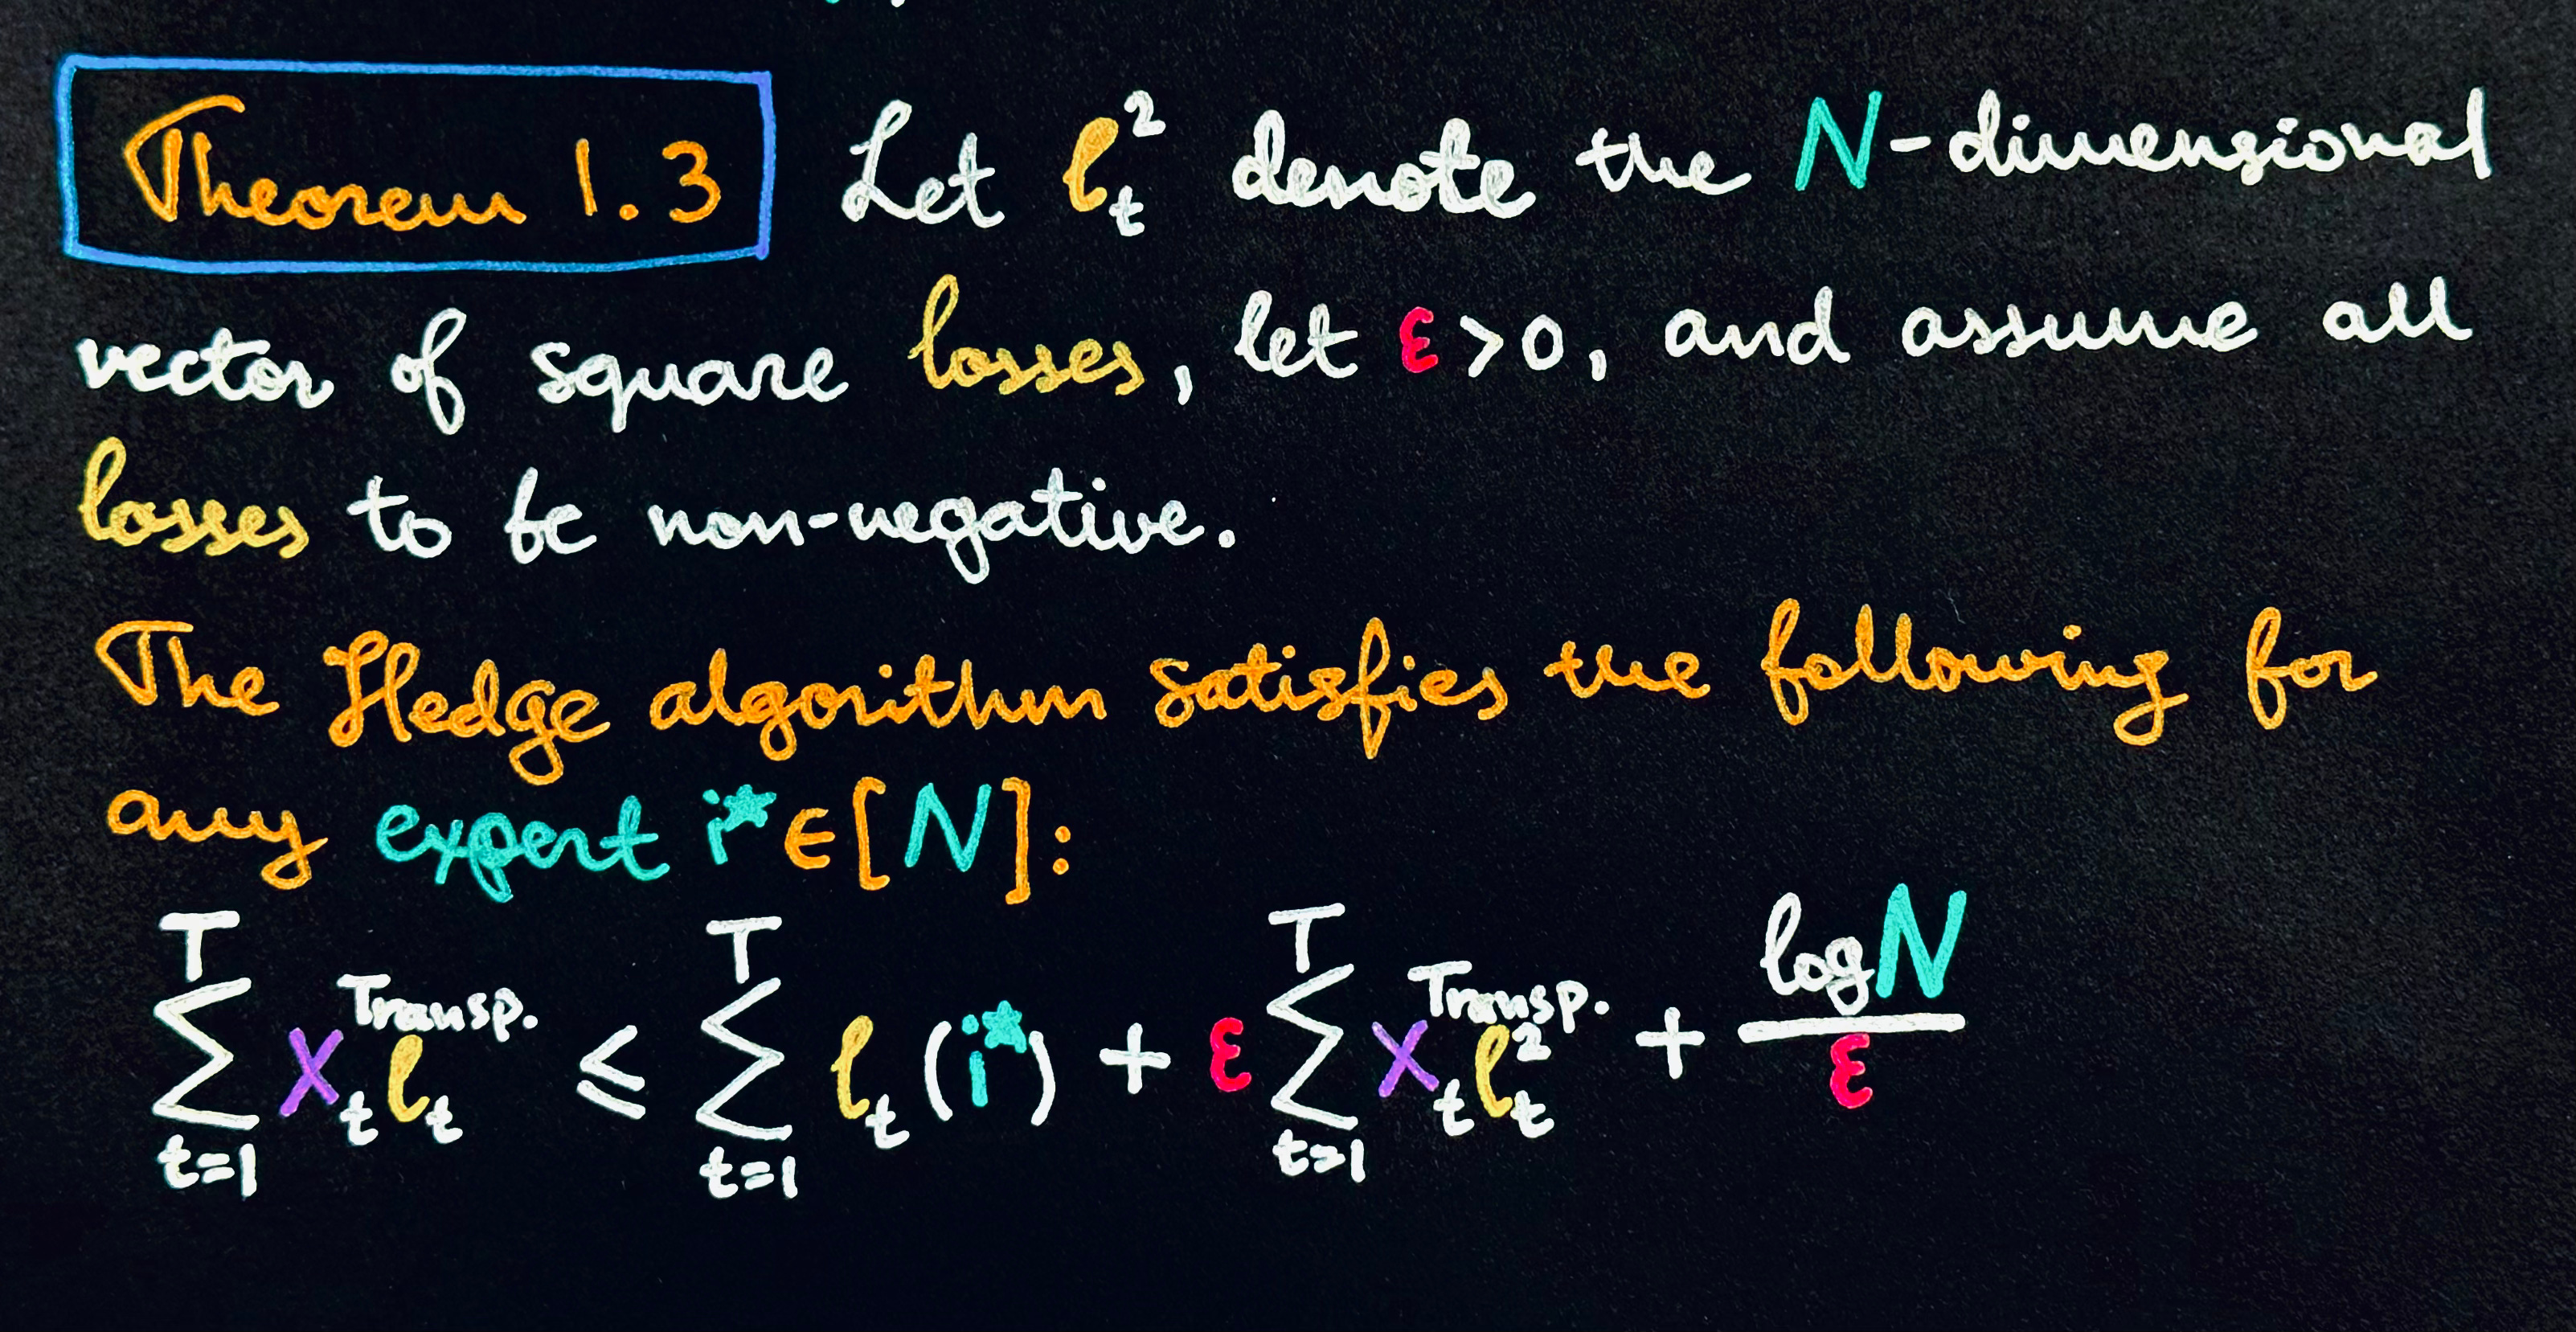 Theorem 1.3 Let ℓ_t^2 denote the N-dimensional
vector of square losses, let ε>0, and assume all
losses to be non-negative.
The Hedge algorithm satisfies the following for
any expert i*∈[N]:
∑_{t=1}^{T} x_t^{Transp.} ℓ_t ≤ ∑_{t=1}^{T} ℓ_t(i*) + ε ∑_{t=1}^{T} x_t^{Transp.} ℓ_t^2 + log N / ε